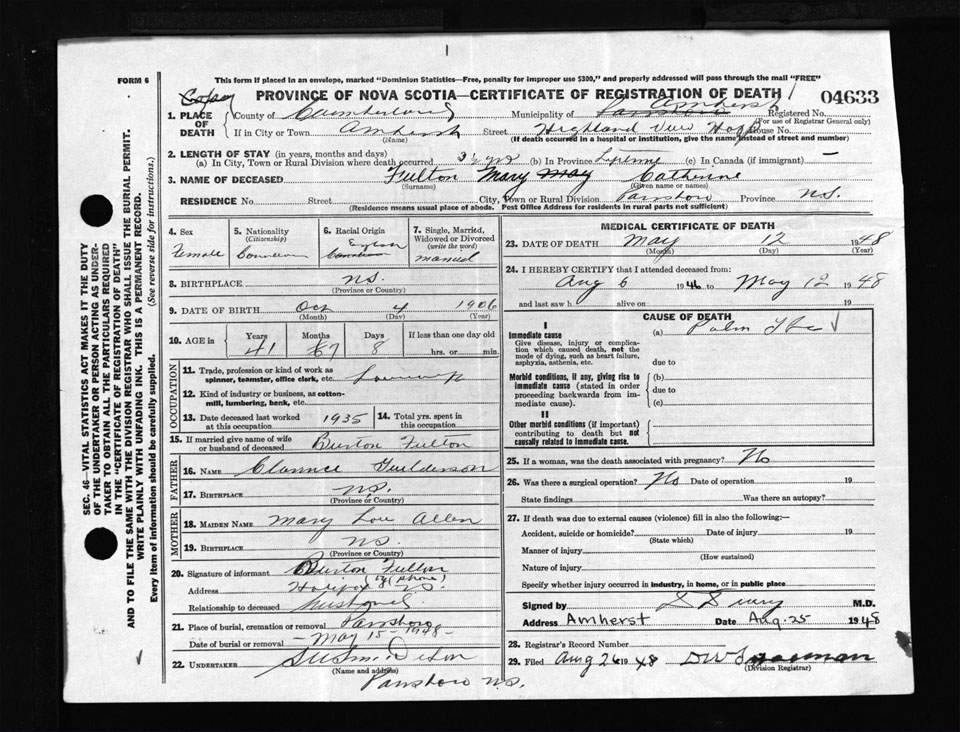 FORM 6
This form if placed in an envelope, marked "Dominion Statistics—Free, penalty for improper use $300," and properly addressed will pass through the mail "FREE"
PROVINCE OF NOVA SCOTIA—CERTIFICATE OF REGISTRATION OF DEATH
04633
1. PLACE OF DEATH
County of Cumberland Municipality of Parrsboro Amherst Registered No.
(For use of Registrar General only)
If in City or Town Amherst Street Highland View Hosp House No.
(Name) (If death occurred in a hospital or institution, give the name instead of street and number)
2. LENGTH OF STAY (in years, months and days)
(a) In City, Town or Rural Division where death occurred 3½ yrs (b) In Province Lifetime (c) In Canada (if immigrant) —
3. NAME OF DECEASED Fulton Mary May Catherine
(Surname) (Given name or names)
RESIDENCE No. Street City, Town or Rural Division Parrsboro Province N.S.
(Residence means usual place of abode. Post Office Address for residents in rural parts not sufficient)
4. Sex Female
5. Nationality (Citizenship) Canadian
6. Racial Origin English Canadian
7. Single, Married, Widowed or Divorced (write the word) married
8. BIRTHPLACE N.S.
(Province or Country)
9. DATE OF BIRTH Oct 4 1906
(Month) (Day) (Year)
10. AGE in Years Months Days If less than one day old
41 67 8 hrs. or min.
OCCUPATION
11. Trade, profession or kind of work as spinner, teamster, office clerk, etc. Housewife
12. Kind of industry or business, as cotton-mill, lumbering, bank, etc.
13. Date deceased last worked at this occupation 1935
14. Total yrs. spent in this occupation
15. If married give name of wife or husband of deceased Burton Fulton
FATHER
16. NAME Clarence
17. BIRTHPLACE N.S.
(Province or Country)
MOTHER
18. MAIDEN NAME Mary Lou Allen
19. BIRTHPLACE N.S.
(Province or Country)
20. Signature of informant Burton Fulton
(by phone)
Address Halifax N.S.
Relationship to deceased husband
21. Place of burial, cremation or removal Parrsboro
Date of burial or removal — May 15 - 1948 -
22. UNDERTAKER
(Name and address)
Parrsboro N.S.
MEDICAL CERTIFICATE OF DEATH
23. DATE OF DEATH May 12 1948
(Month) (Day) (Year)
24. I HEREBY CERTIFY that I attended deceased from:
Aug 6 1946 to May 12 1948
and last saw h alive on 19
CAUSE OF DEATH
I
Immediate cause (a) Pulm Tbc
Give disease, injury or complication which caused death, not the mode of dying, such as heart failure, asphyxia, asthenia, etc.
due to
Morbid conditions, if any, giving rise to immediate cause (stated in order proceeding backwards from immediate cause).
(b)
due to
(c)
II
Other morbid conditions (if important) contributing to death but not causally related to immediate cause.
25. If a woman, was the death associated with pregnancy? No
26. Was there a surgical operation? No Date of operation 19
State findings Was there an autopsy?
27. If death was due to external causes (violence) fill in also the following:—
Accident, suicide or homicide? Date of injury 19
(State which)
Manner of injury
(How sustained)
Nature of injury
Specify whether injury occurred in industry, in home, or in public place
Signed by M.D.
Address Amherst Date Aug. 25 1948
28. Registrar's Record Number
29. Filed Aug 26 1948
(Division Registrar)
SEC. 46—VITAL STATISTICS ACT MAKES IT THE DUTY
OF THE UNDERTAKER OR PERSON ACTING AS UNDERTAKER TO OBTAIN ALL THE PARTICULARS REQUIRED
IN THE "CERTIFICATE OF REGISTRATION OF DEATH"
AND TO FILE THE SAME WITH THE DIVISION REGISTRAR WHO SHALL ISSUE THE BURIAL PERMIT.
WRITE PLAINLY WITH UNFADING INK. THIS IS A PERMANENT RECORD.
Every item of information should be carefully supplied. (See reverse side for instructions.)